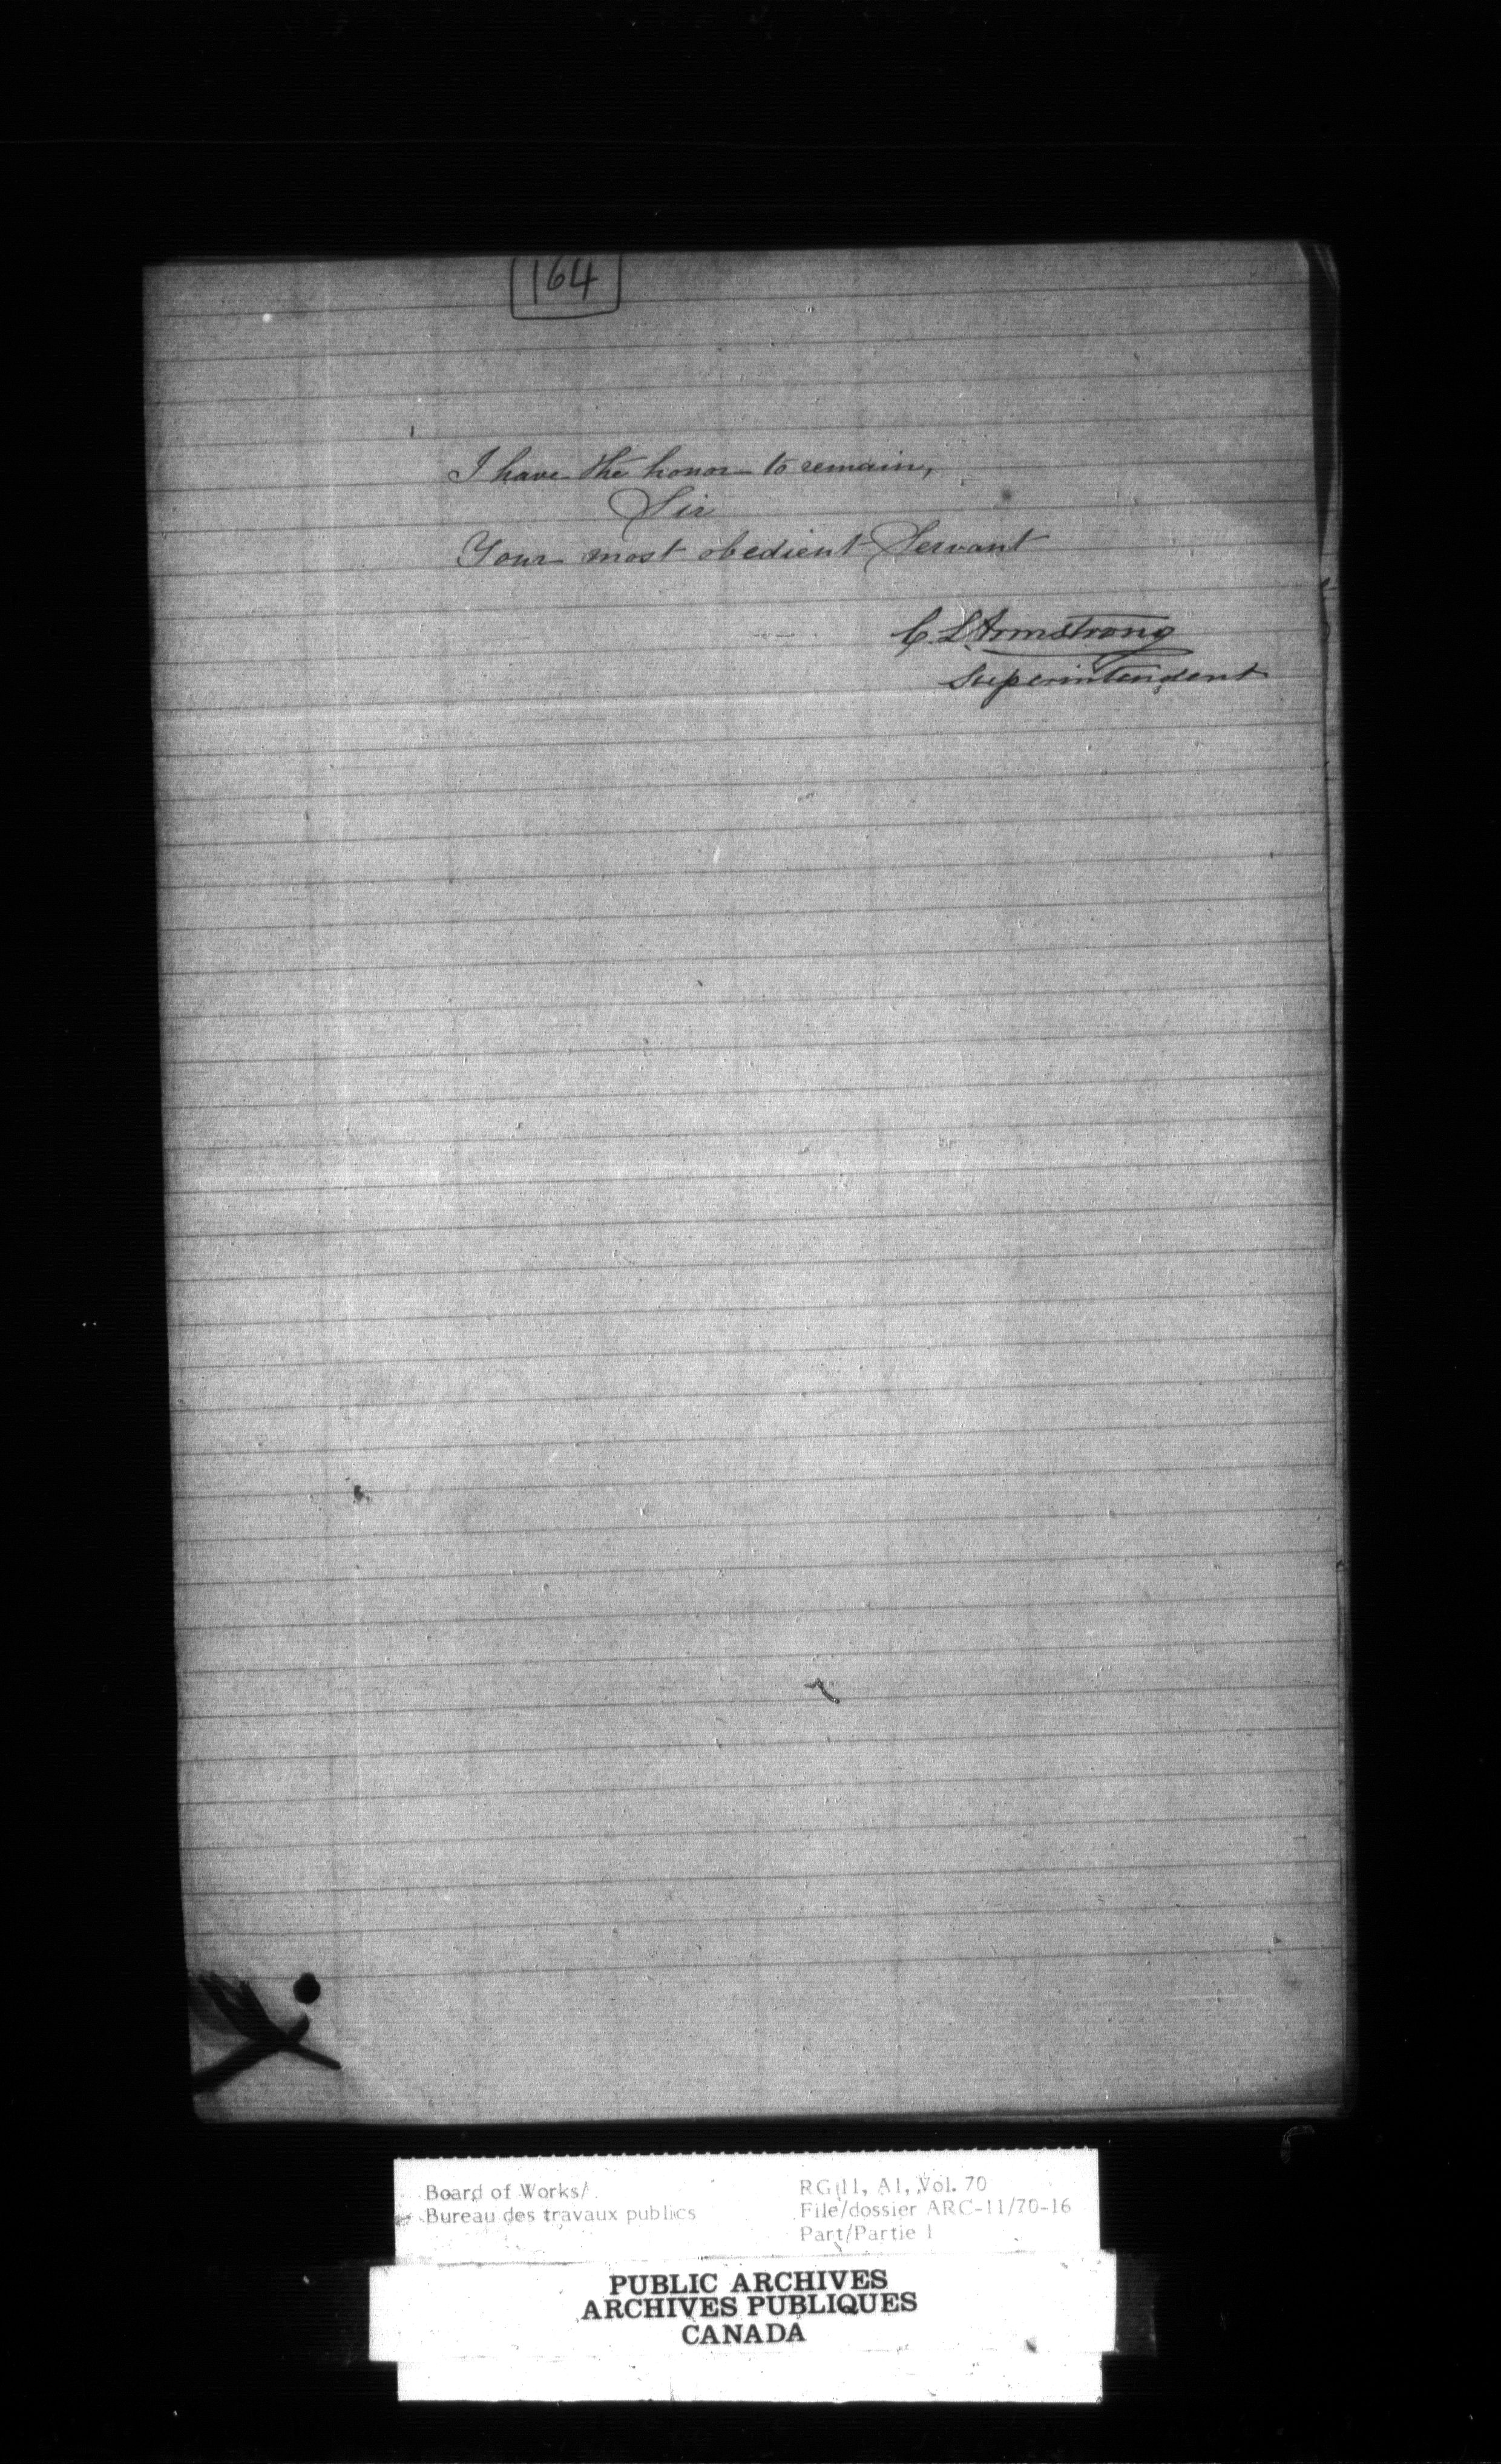 164
I have the honor to remain,
Sir
Your most obedient Servant
C. L. Armstrong
Superintendent
Board of Works/
Bureau des travaux publics
RG 11, A1, Vol. 70
File/dossier ARC-11/70-16
Part/Partie 1
PUBLIC ARCHIVES
ARCHIVES PUBLIQUES
CANADA